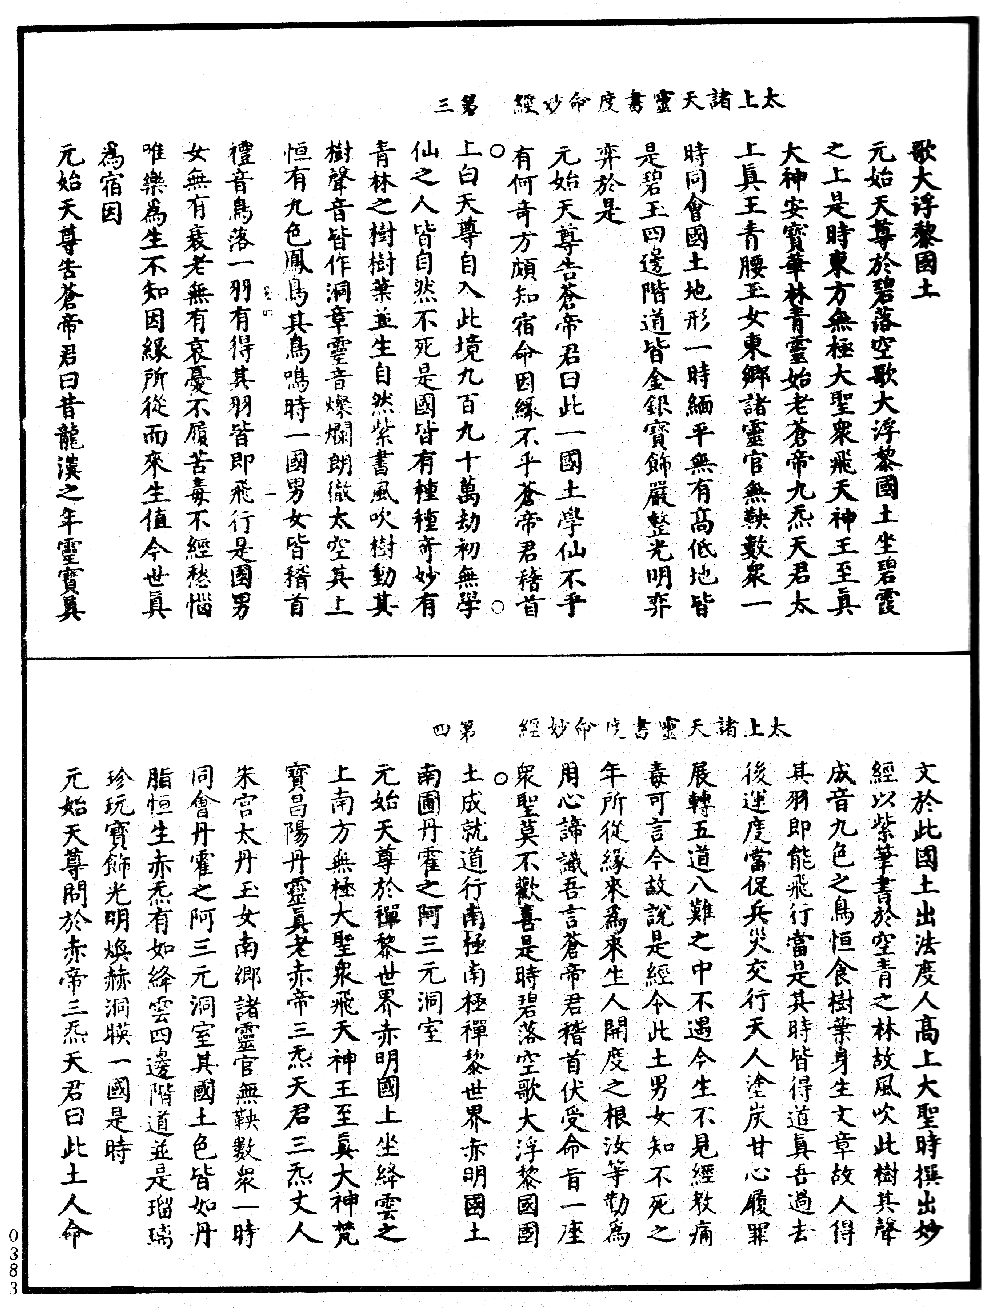 太上諸天靈書度命妙經　第三
歌大浮黎國土
元始天尊於碧落空歌大浮黎國土坐碧霞
之上是時東方無極大聖衆飛天神王至眞
大神安寶華林青靈始老蒼帝九炁天君太
上眞王青腰玉女東鄉諸靈官無鞅數衆一
時同會國土地形一時緬平無有高低地皆
是碧玉四邊階道皆金銀寶飾嚴整光明弈
弈於是
元始天尊告蒼帝君曰此一國土學仙不乎
有何奇方頗知宿命因緣不乎蒼帝君稽首
上白天尊自入此境九百九十萬劫初無學
仙之人皆自然不死是國皆有種種奇妙有
青林之樹樹葉並生自然紫書風吹樹動其
樹聲音皆作洞章靈音燦爛朗徹太空其上
恒有九色鳳鳥其鳥鳴時一國男女皆稽首
禮音鳥落一羽有得其羽皆即飛行是國男
女無有衰老無有哀憂不履苦毒不經愁惱
唯樂為生不知因緣所從而來生值今世眞
為宿因
元始天尊告蒼帝君曰昔龍漢之年靈寶眞
太上諸天靈書度命妙經　第四
文於此國土出法度人高上大聖時撰出妙
經以紫筆書於空青之林故風吹此樹其聲
成音九色之鳥恒食樹葉身生文章故人得
其羽即能飛行當是其時皆得道眞吾過去
後運度當促兵災交行天人塗炭甘心履罪
展轉五道八難之中不遇今生不見經教痛
毒可言今故說是經令此土男女知不死之
年所從緣來為來生人開度之根汝等勤為
用心諦識吾言蒼帝君稽首伏受命旨一座
衆聖莫不歡喜是時碧落空歌大浮黎國國
土成就道行南極南極禪黎世界赤明國土
南圃丹霍之阿三元洞室
元始天尊於禪黎世界赤明國上坐絳雲之
上南方無極大聖衆飛天神王至眞大神梵
寶昌陽丹靈眞老赤帝三炁天君三炁丈人
朱宮太丹玉女南鄉諸靈官無鞅數衆一時
同會丹霍之阿三元洞室其國土色皆如丹
脂恒生赤炁有如絳雲四邊階道並是瑠璃
珍玩寶飾光明煥赫洞暎一國是時
元始天尊問於赤帝三炁天君曰此土人命
0383